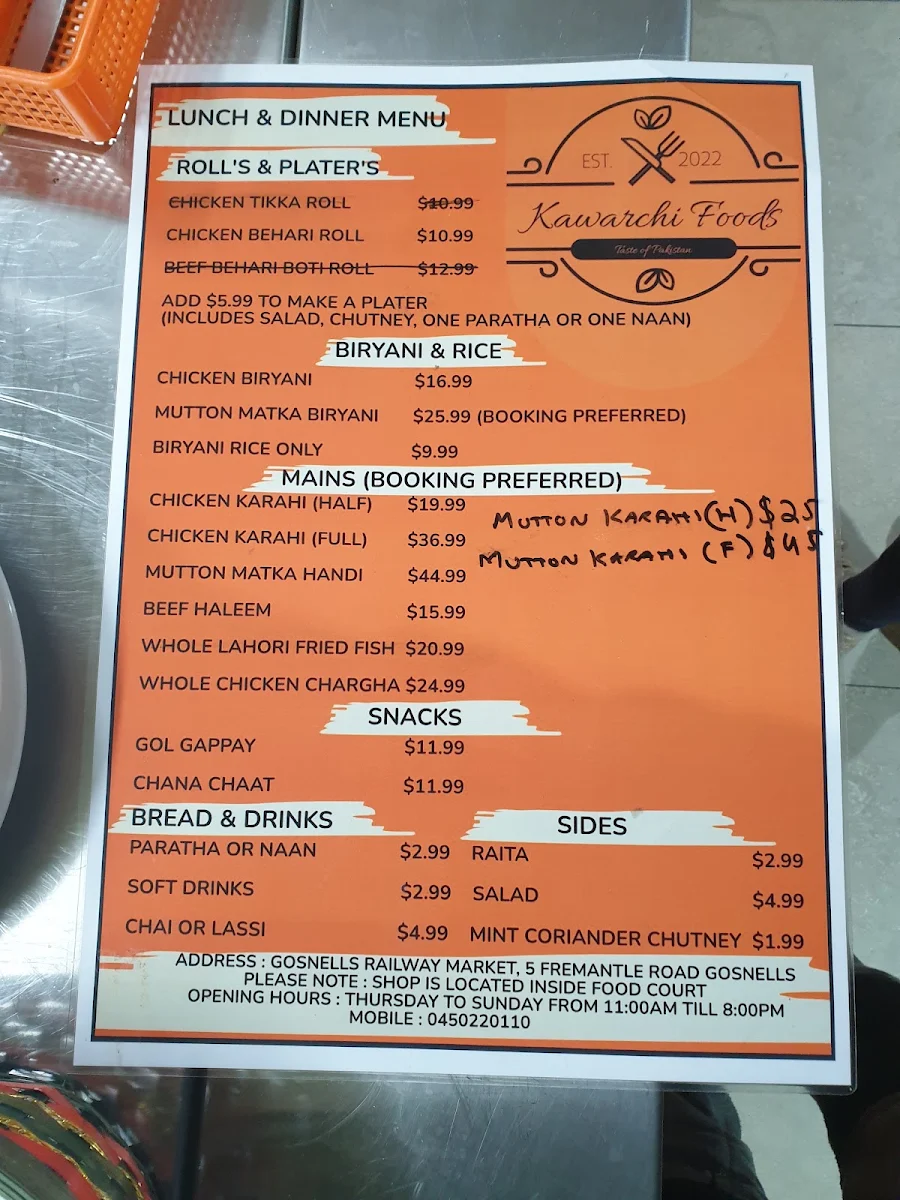 LUNCH & DINNER MENU
EST. 2022
Kawarchi Foods
Taste of Pakistan
ROLL'S & PLATER'S
CHICKEN TIKKA ROLL $10.99
CHICKEN BEHARI ROLL $10.99
BEEF BEHARI BOTI ROLL $12.99
ADD $5.99 TO MAKE A PLATER
(INCLUDES SALAD, CHUTNEY, ONE PARATHA OR ONE NAAN)
BIRYANI & RICE
CHICKEN BIRYANI $16.99
MUTTON MATKA BIRYANI $25.99 (BOOKING PREFERRED)
BIRYANI RICE ONLY $9.99
MAINS (BOOKING PREFERRED)
CHICKEN KARAHI (HALF) $19.99
MUTTON KARAHI (H) $25
CHICKEN KARAHI (FULL) $36.99
MUTTON KARAHI (F) $45
MUTTON MATKA HANDI $44.99
BEEF HALEEM $15.99
WHOLE LAHORI FRIED FISH $20.99
WHOLE CHICKEN CHARGHA $24.99
SNACKS
GOL GAPPAY $11.99
CHANA CHAAT $11.99
BREAD & DRINKS
PARATHA OR NAAN $2.99
SOFT DRINKS $2.99
CHAI OR LASSI $4.99
SIDES
RAITA $2.99
SALAD $4.99
MINT CORIANDER CHUTNEY $1.99
ADDRESS : GOSNELLS RAILWAY MARKET, 5 FREMANTLE ROAD GOSNELLS
PLEASE NOTE : SHOP IS LOCATED INSIDE FOOD COURT
OPENING HOURS : THURSDAY TO SUNDAY FROM 11:00AM TILL 8:00PM
MOBILE : 0450220110